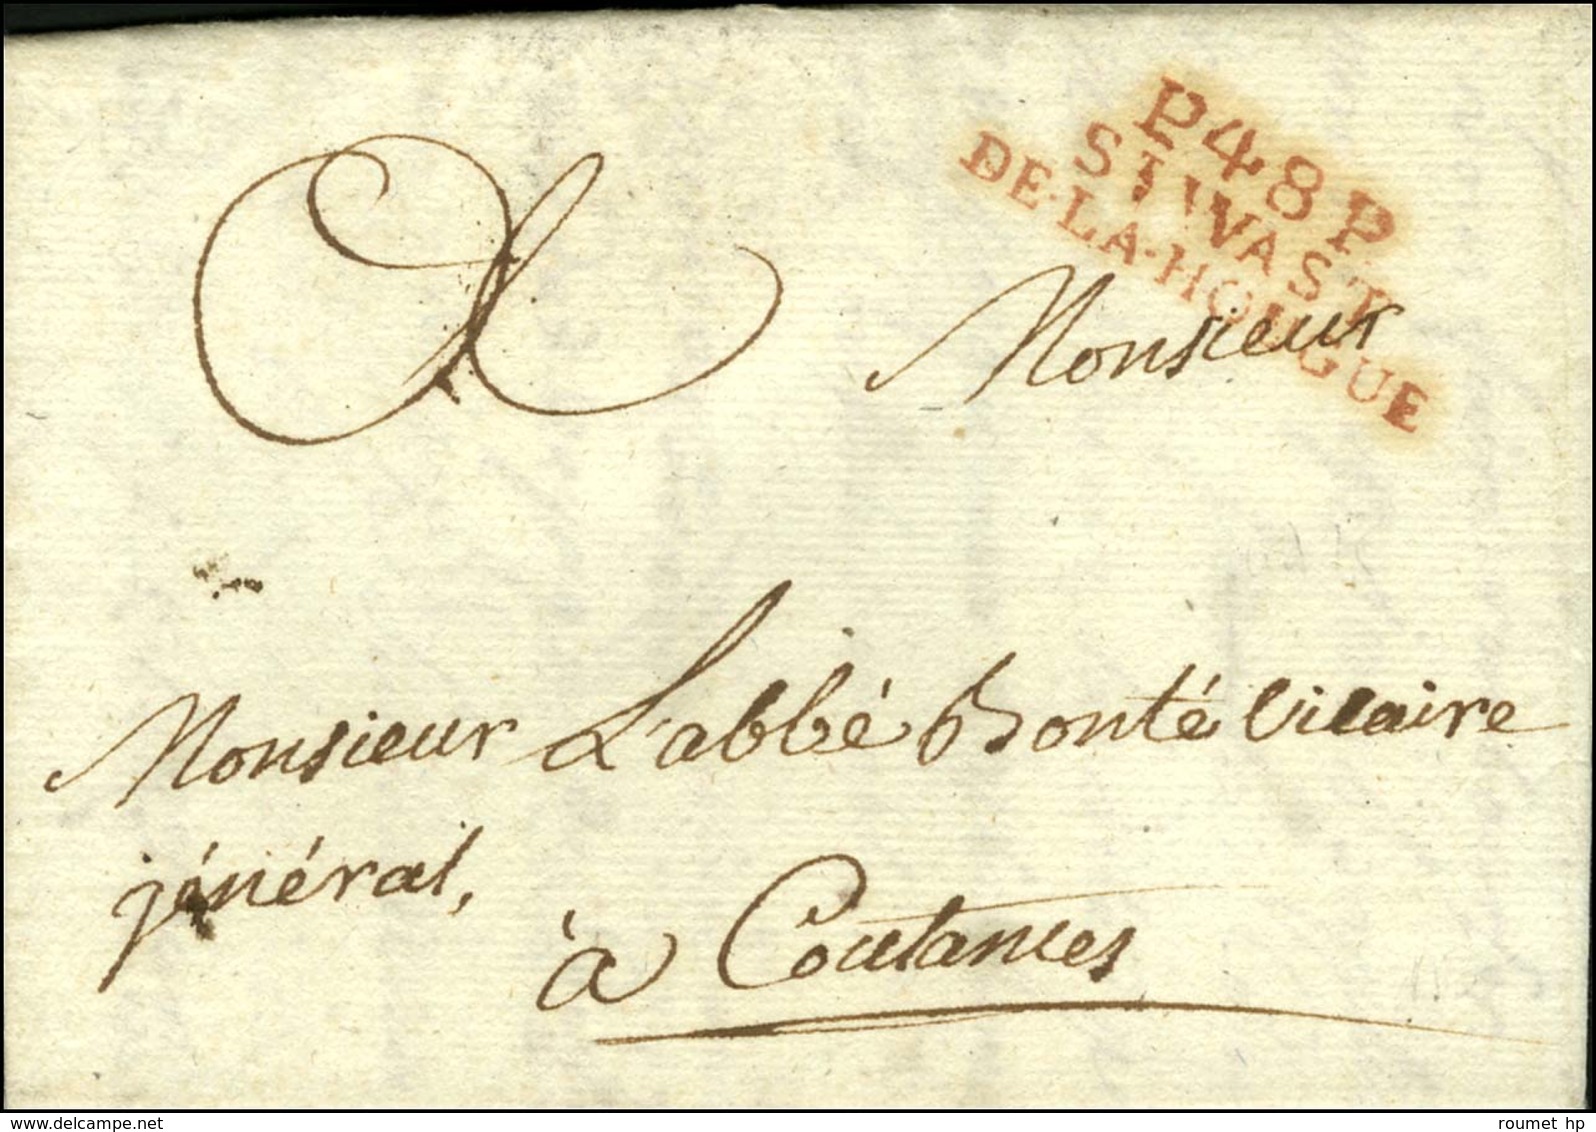 P.48.P.
ST. WAST
DE-LA-HOUGUE
A Monsieur
Monsieur L'abbé Bonté Vicaire
général,
à Coutances
roumet hp